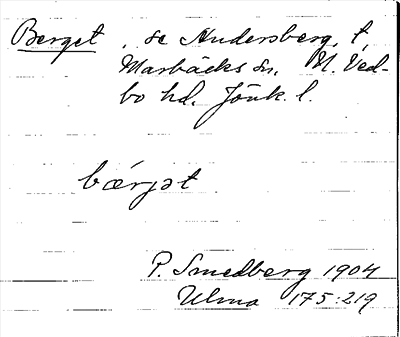 Berget, se Andersberg, t,
Marbäcks sn, N. Ved-
bo hd. Jönk. l.
bærjət
P. Smedberg 1904
Ulma 175:219